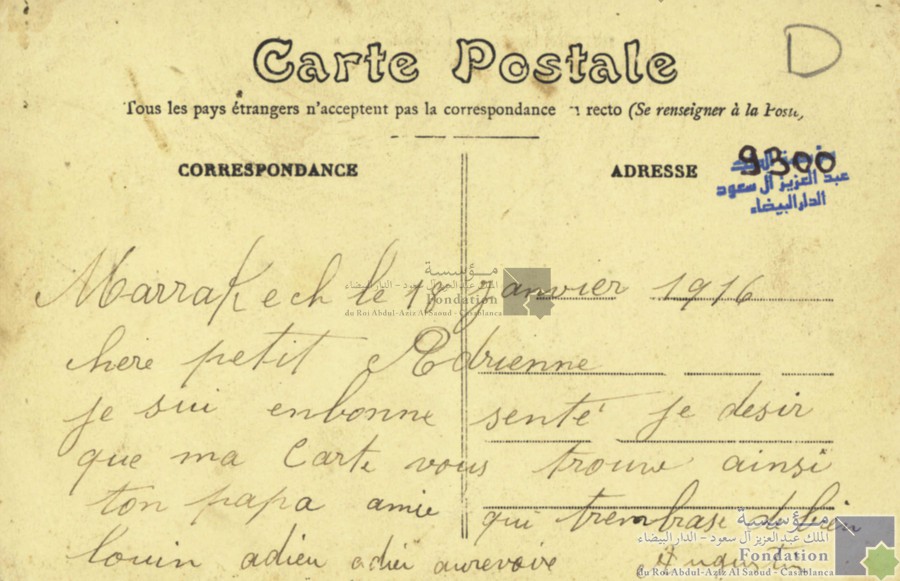 D
Carte Postale
Tous les pays étrangers n'acceptent pas la correspondance au recto (Se renseigner à la Poste)
CORRESPONDANCE
ADRESSE
9300
عبد العزيز آل سعود
الدار البيضاء
Marrakech le 18 Janvier 1916
مؤسسة
الملك عبد العزيز آل سعود - الدار البيضاء
Fondation
du Roi Abdul-Aziz Al Saoud - Casablanca
here petit Adrienne
je sui enbonne senté je desir
que ma Carte vous trouve ainsi
ton papa amie qui trembrase de bien
louin adieu adieu aurevoire Augustin
مؤسسة
الملك عبد العزيز آل سعود - الدار البيضاء
Fondation
du Roi Abdul-Aziz Al Saoud - Casablanca